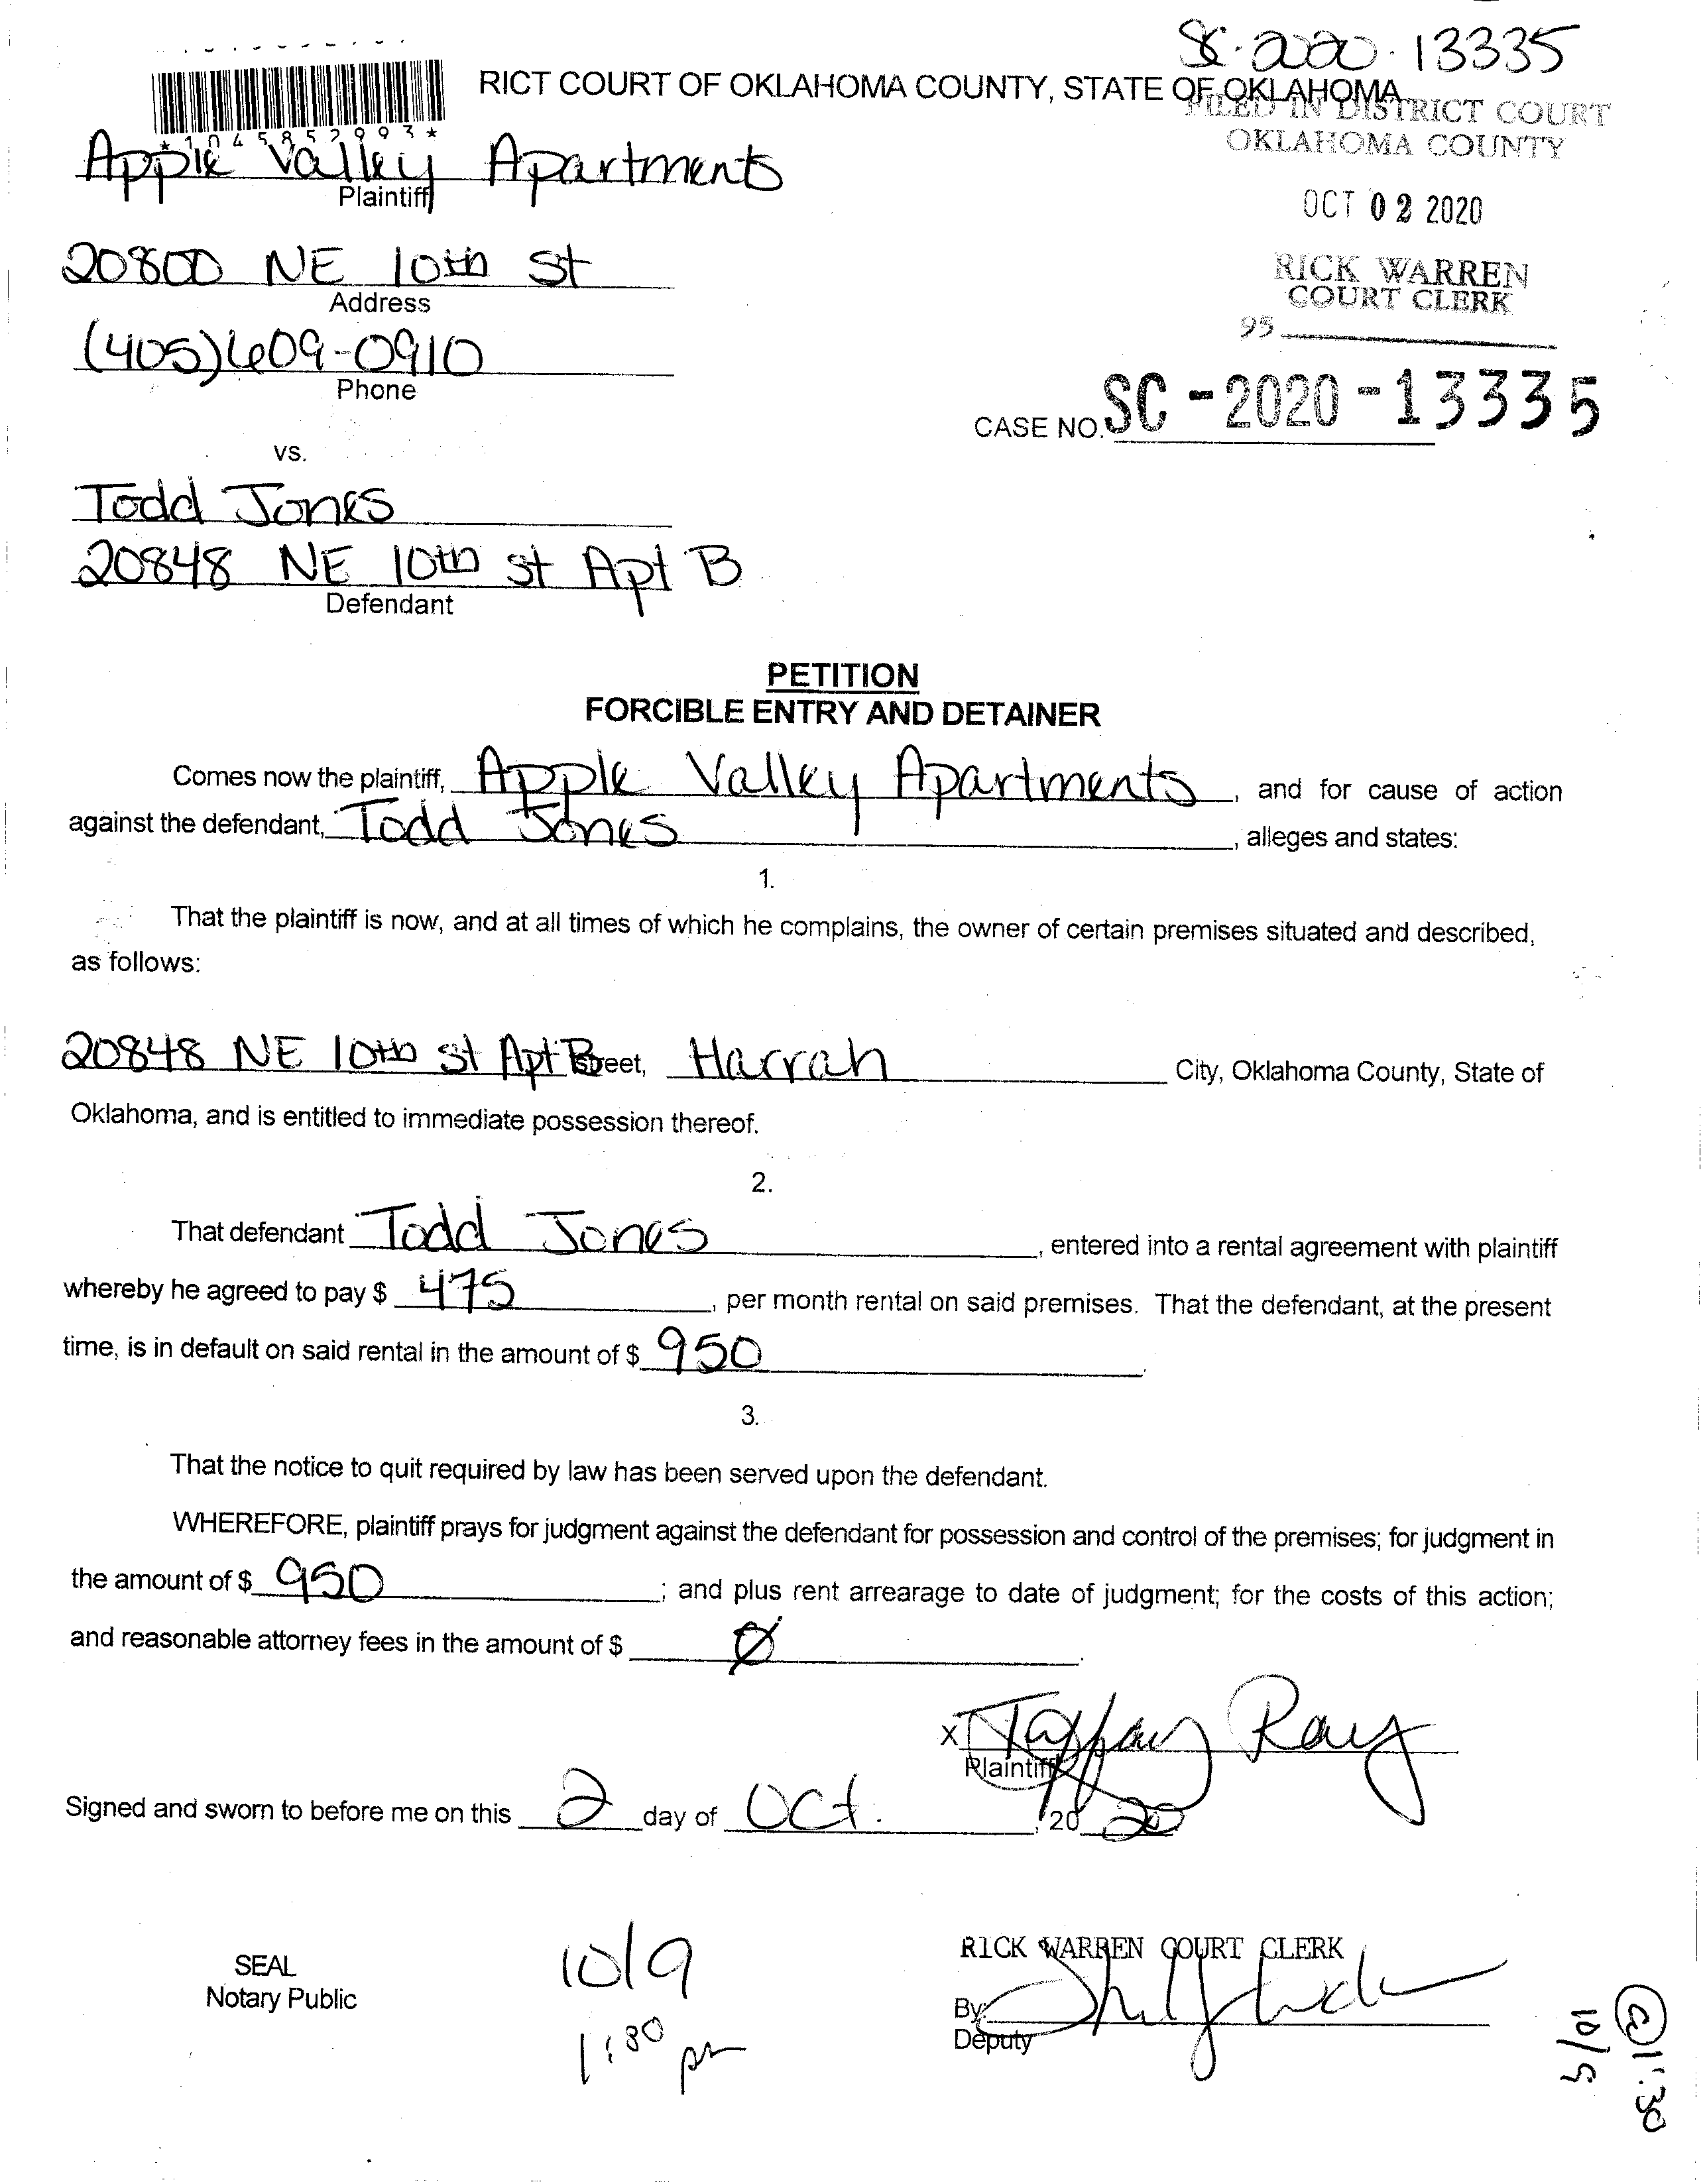 SC-2020-13335
RICT COURT OF OKLAHOMA COUNTY, STATE OF OKLAHOMA
FILED IN DISTRICT COURT
OKLAHOMA COUNTY
* 1 0 4 5 8 5 2 9 9 3 *
Apple Valley Apartments
Plaintiff
OCT 02 2020
20800 NE 10th St
Address
RICK WARREN
COURT CLERK
95
(405)609-0910
Phone
CASE NO. SC-2020-13335
vs.
Todd Jones
20848 NE 10th St Apt B
Defendant
PETITION
FORCIBLE ENTRY AND DETAINER
Comes now the plaintiff, Apple Valley Apartments, and for cause of action
against the defendant, Todd Jones, alleges and states:
1.
That the plaintiff is now, and at all times of which he complains, the owner of certain premises situated and described,
as follows:
20848 NE 10th St Apt B Street, Harrah City, Oklahoma County, State of
Oklahoma, and is entitled to immediate possession thereof.
2.
That defendant Todd Jones, entered into a rental agreement with plaintiff
whereby he agreed to pay $ 475, per month rental on said premises. That the defendant, at the present
time, is in default on said rental in the amount of $ 950.
3.
That the notice to quit required by law has been served upon the defendant.
WHEREFORE, plaintiff prays for judgment against the defendant for possession and control of the premises; for judgment in
the amount of $ 950; and plus rent arrearage to date of judgment; for the costs of this action;
and reasonable attorney fees in the amount of $ Ø.
X Taffany Ray
Plaintiff
Signed and sworn to before me on this 2 day of Oct., 2020
SEAL
Notary Public
10/9
1:30 pm
RICK WARREN COURT CLERK
By:
Deputy
10/9
@1:30